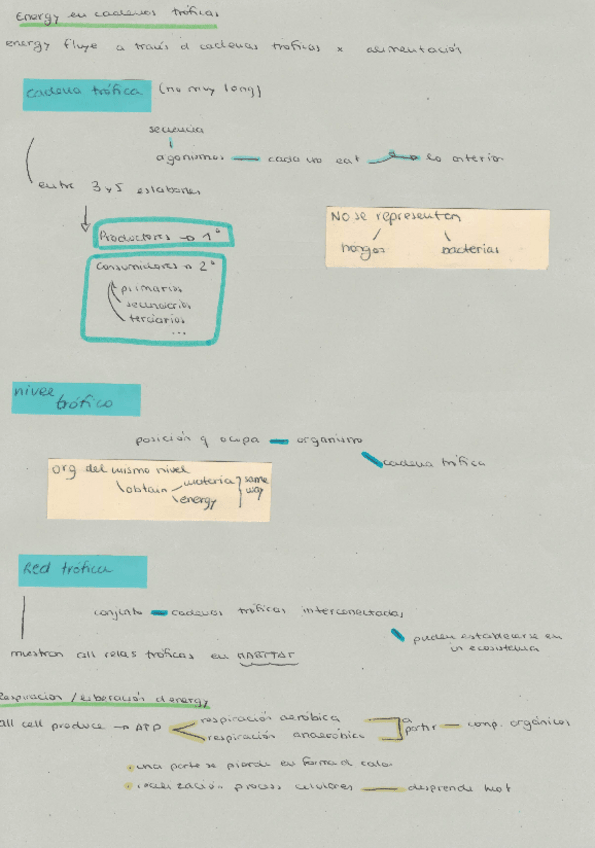 Energy en cadenas tróficas
energy fluye a través d cadenas tróficas x alimentación
cadena trófica (no muy long)
secuencia
agonismos — cada uno eat lo anterior
entre 3 y 5 eslabones
Productores → 1º
Consumidores → 2º
primarios
secundarios
terciarios
...
No se representan
hongos bacterias
nivel
trófico
posición q ocupa — organismo
cadena trófica
org del mismo nivel
obtain materia same
energy way
Red trófica
conjunto — cadenas tróficas interconectadas
pueden establecerse en
un ecosistema
muestran all relas tróficas en HABITAT
Respiración / liberación d energy
all cell produce → ATP
respiración aeróbica
respiración anaeróbica
a
partir — comp. orgánicos
una parte se pierde en forma d calor
realización process celulares — desprende hot